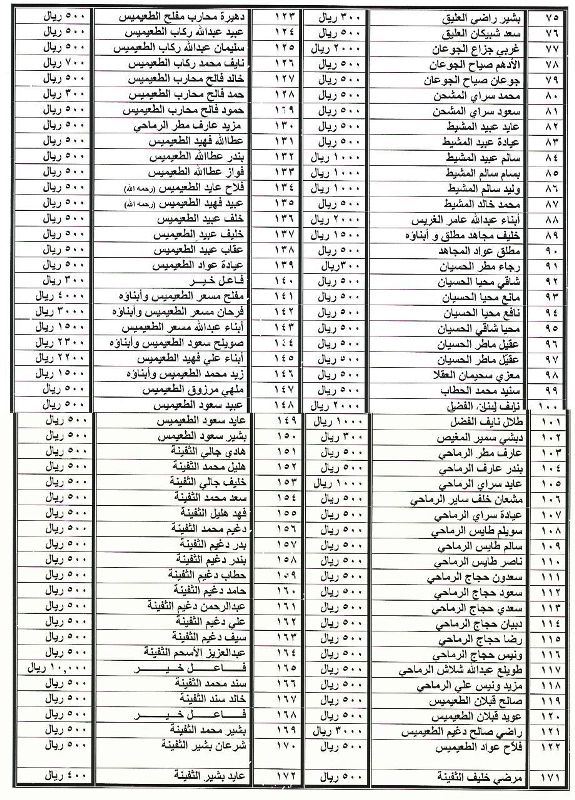 ٧٥ بشير راضي العليق ٣٠٠ ريال ١٢٣ دهيرة محارب مفلح الطعيميس ٥٠٠ ريال
٧٦ سعد شبيكان العليق ٥٠٠ ريال ١٢٤ عبيد عبدالله ركاب الطعيميس ٥٠٠ ريال
٧٧ غربي جزاع الجوعان ٢٠٠٠ ريال ١٢٥ سليمان عبدالله ركاب الطعيميس ٥٠٠ ريال
٧٨ الأدهم صياح الجوعان ٥٠٠ ريال ١٢٦ نايف محمد ركاب الطعيميس ٧٠٠ ريال
٧٩ جوعان صياح الجوعان ٥٠٠ ريال ١٢٧ خالد فالح محارب الطعيميس ٥٠٠ ريال
٨٠ محمد سراي المشحن ٥٠٠ ريال ١٢٨ حمد فالح محارب الطعيميس ٣٠٠ ريال
٨١ سعود سراي المشحن ٥٠٠ ريال ١٢٩ حمود فالح محارب الطعيميس ٥٠٠ ريال
٨٢ عايد عبيد المشيط ٥٠٠ ريال ١٣٠ مزيد عارف مطر الرماحي ٥٠٠ ريال
٨٣ عيادة عبيد المشيط ٥٠٠ ريال ١٣١ عطاالله فهيد الطعيميس ٥٠٠ ريال
٨٤ سالم عبيد المشيط ١٠٠٠ ريال ١٣٢ بندر عطاالله الطعيميس ٥٠٠ ريال
٨٥ بسام سالم المشيط ٥٠٠ ريال ١٣٣ فواز عطاالله الطعيميس ٥٠٠ ريال
٨٦ وليد سالم المشيط ١٠٠٠ ريال ١٣٤ فلاح عايد الطعيميس (رحمه الله) ٥٠٠ ريال
٨٧ محمد خالد المشيط ٥٠٠ ريال ١٣٥ عبيد فهيد الطعيميس (رحمه الله) ٥٠٠ ريال
٨٨ أبناء عبدالله عامر الغريس ٢٠٠٠ ريال ١٣٦ خلف عبيد الطعيميس ٥٠٠ ريال
٨٩ خليف مجاهد مطلق و أبناؤه ١٥٠٠ ريال ١٣٧ خليف عبيد الطعيميس ٥٠٠ ريال
٩٠ مطلق عواد المجاهد ٥٠٠ ريال ١٣٨ عقاب عبيد الطعيميس ٥٠٠ ريال
٩١ رجاء مطر الحسيان ٣٠٠ ريال ١٣٩ عيادة عواد الطعيميس ٥٠٠ ريال
٩٢ شافي محيا الحسيان ٥٠٠ ريال ١٤٠ فاعل خير ٣٠٠ ريال
٩٣ مانع محيا الحسيان ٥٠٠ ريال ١٤١ مفلح مسعر الطعيميس وأبناؤه ٤٠٠٠ ريال
٩٤ نافع محيا الحسيان ٥٠٠ ريال ١٤٢ فرحان مسعر الطعيميس وأبناؤه ٣٠٠٠ ريال
٩٥ محيا شافي الحسيان ٥٠٠ ريال ١٤٣ أبناء عبدالله مسعر الطعيميس ١٥٠٠ ريال
٩٦ عقيل مطر الحسيان ٥٠٠ ريال ١٤٤ صويلح سعود الطعيميس وأبناؤه ٢٣٠٠ ريال
٩٧ عقيل مطر الحسيان ٥٠٠ ريال ١٤٥ أبناء علي فهيد الطعيميس ٢٢٠٠ ريال
٩٨ معزي سحيمان العقلا ٥٠٠ ريال ١٤٦ زيد محمد الطعيميس وأبناؤه ١٥٠٠ ريال
٩٩ سنيد محمد الحطاب ٥٠٠ ريال ١٤٧ ملهي مرزوق الطعيميس ٥٠٠ ريال
١٠٠ نايف الفضل ٢٠٠٠ ريال ١٤٨ عبيد سعود الطعيميس ٥٠٠ ريال
١٠١ طلال نايف الفضل ١٠٠٠ ريال ١٤٩ عايد سعود الطعيميس ٥٠٠ ريال
١٠٢ دبشي سمير المغيص ٣٠٠ ريال ١٥٠ بشير سعود الطعيميس ٥٠٠ ريال
١٠٣ عارف مطر الرماحي ٥٠٠ ريال ١٥١ هادي جالي الثفينة ٥٠٠ ريال
١٠٤ بندر عارف الرماحي ٥٠٠ ريال ١٥٢ هليل محمد الثفينة ٥٠٠ ريال
١٠٥ عايد سراي الرماحي ١٠٠٠ ريال ١٥٣ خليف جالي الثفينة ٥٠٠ ريال
١٠٦ مشعان خلف ساير الرماحي ٥٠٠ ريال ١٥٤ سعد محمد الثفينة ٥٠٠ ريال
١٠٧ عيادة سراي الرماحي ٥٠٠ ريال ١٥٥ فهد هليل الثفينة ٥٠٠ ريال
١٠٨ سويلم طايس الرماحي ٥٠٠ ريال ١٥٦ دغيم محمد الثفينة ٥٠٠ ريال
١٠٩ سالم طايس الرماحي ٥٠٠ ريال ١٥٧ بدر دغيم الثفينة ٥٠٠ ريال
١١٠ ناصر طايس الرماحي ٥٠٠ ريال ١٥٨ بندر دغيم الثفينة ٥٠٠ ريال
١١١ سعدون حجاج الرماحي ٥٠٠ ريال ١٥٩ حطاب دغيم الثفينة ٥٠٠ ريال
١١٢ سعود حجاج الرماحي ٥٠٠ ريال ١٦٠ حامد دغيم الثفينة ٥٠٠ ريال
١١٣ سعدي حجاج الرماحي ٥٠٠ ريال ١٦١ عبدالرحمن دغيم الثفينة ٥٠٠ ريال
١١٤ دبيان حجاج الرماحي ٥٠٠ ريال ١٦٢ علي دغيم الثفينة ٥٠٠ ريال
١١٥ رضا حجاج الرماحي ٥٠٠ ريال ١٦٣ سيف دغيم الثفينة ٥٠٠ ريال
١١٦ ونيس حجاج الرماحي ٥٠٠ ريال ١٦٤ عبدالعزيز الأسحم الثفينة ٥٠٠ ريال
١١٧ طويلع عبدالله شلاش الرماحي ٥٠٠ ريال ١٦٥ فاعل خير ١٠,٠٠٠ ريال
١١٨ مزيد ونيس علي الرماحي ٥٠٠ ريال ١٦٦ سند محمد الثفينة ٥٠٠ ريال
١١٩ صالح قبلان الطعيميس ٥٠٠ ريال ١٦٧ خالد سند الثفينة ٥٠٠ ريال
١٢٠ عويد قبلان الطعيميس ٥٠٠ ريال ١٦٨ فاعل خير ٥٠٠ ريال
١٢١ راضي صالح دغيم الطعيميس ٣٠٠٠ ريال ١٦٩ بشير محمد الثفينة ٥٠٠ ريال
١٢٢ فلاح عواد الطعيميس ٥٠٠ ريال ١٧٠ شرعان بشير الثفينة ٥٠٠ ريال
١٧١ مرضي خليف الثفينة ٥٠٠ ريال ١٧٢ عايد بشير الثفينة ٤٠٠ ريال